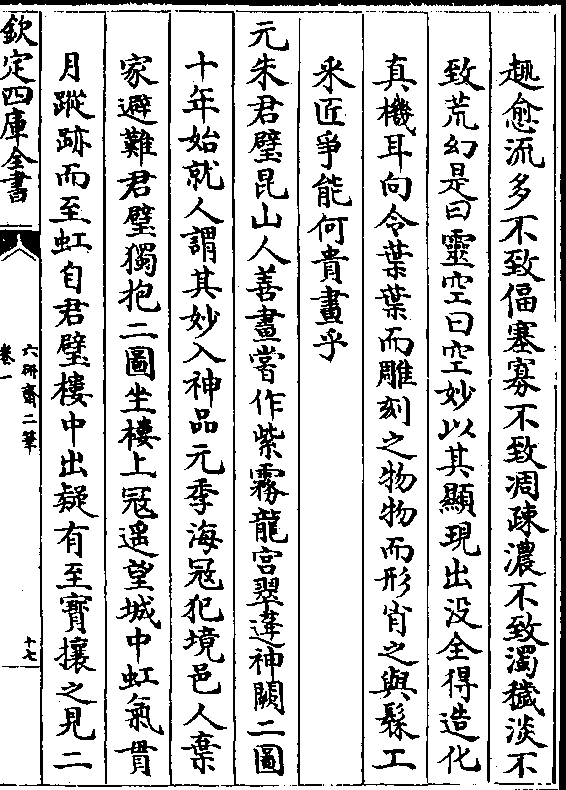 趣愈流多不致偪塞寡不致凋疎濃不致濁穢淡不
致荒幻是曰靈空曰空妙以其顯現出没全得造化
真機耳向令葉葉而雕刻之物物而形肖之與髹工
采匠爭能何貴畫乎
元朱君璧昆山人善畫嘗作紫霧龍宫翠違神闕二圖
十年始就人謂其妙入神品元季海冦犯境邑人棄
家避難君璧獨抱二圖坐樓上冦遥望城中虹氣貫
月蹤跡而至虹自君璧樓中出疑有至寳攘之見二
欽定四庫全書
六研齋二筆
卷一
十七